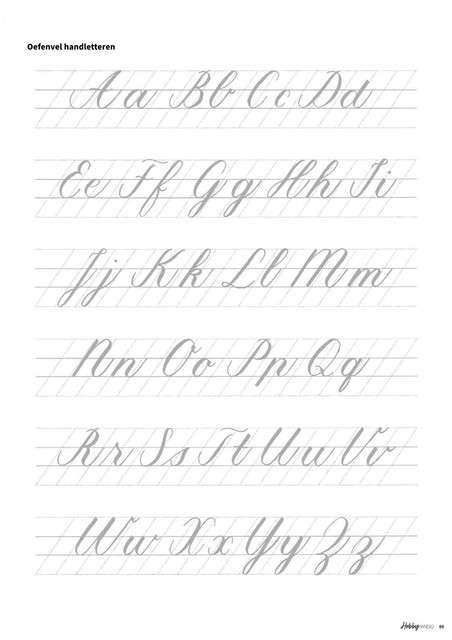 Oefenvel handletteren
Aa Bb Cc Dd
Ee Ff Gg Hh Ii
Jj Kk Ll Mm
Nn Oo Pp Qq
Rr Ss Tt Uu Vv
Ww Xx Yy Zz
HobbyHANDIG 89